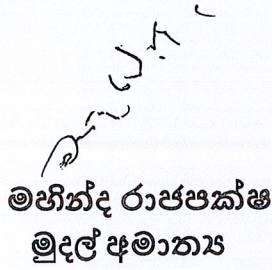 මහින්ද රාජපක්ෂ
මුදල් අමාත්‍ය